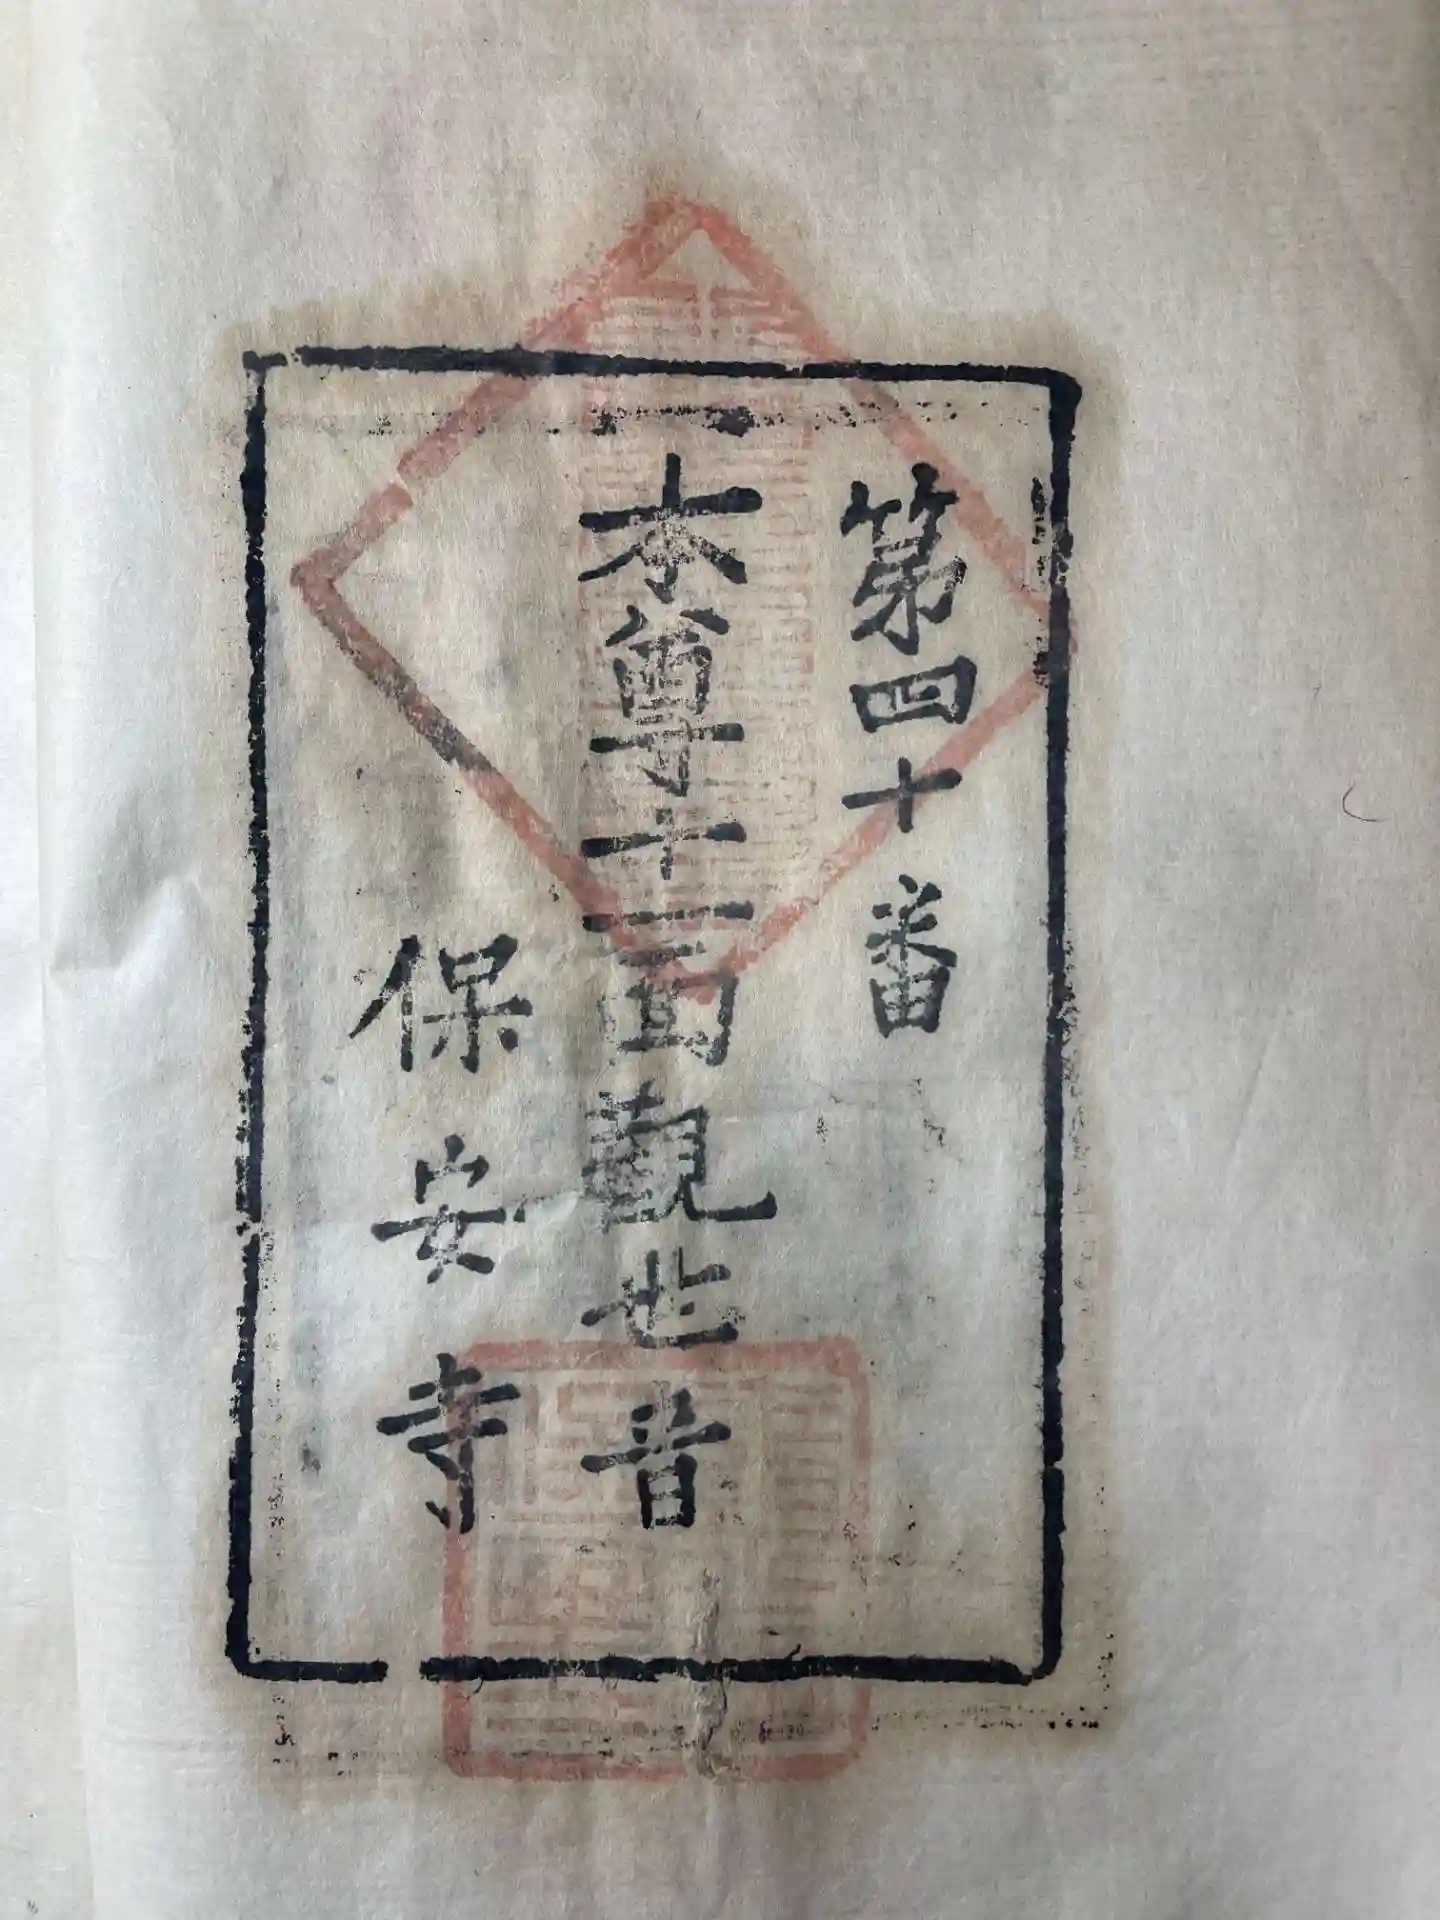 第四十番
本尊十一面觀世音
保安寺